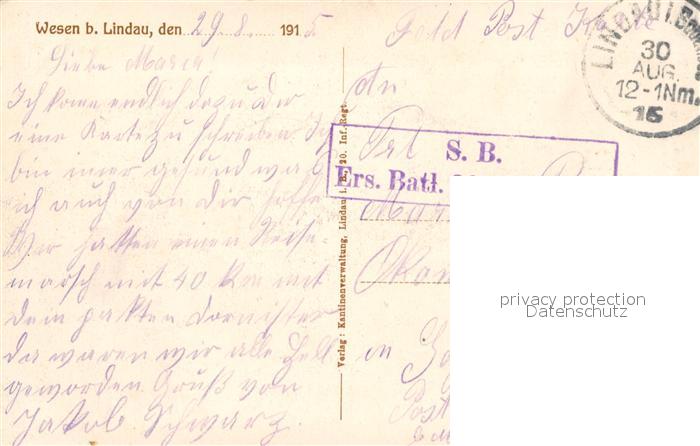 Wesen b. Lindau, den 29.8. 1915
Liebe
Ich kome endlich dazu dir
eine Karte zu schreiben Ich
bin imer gesund was
ich auch von dir hoffe
Wir hatten einen Reise-
marsch mit 40 km mit
dem pakten Tornister
da waren wir alle
geworden Gruß von
Jakob Schwarz.
Verlag: Kantinenverwaltung, Lindau i. B., 20. Inf.-Regt.
Feld Post Karte
An
S. B.
Ers. Batl.
in
Post
LINDAU i. B
30
AUG.
12-1Nm.
15
privacy protection
Datenschutz